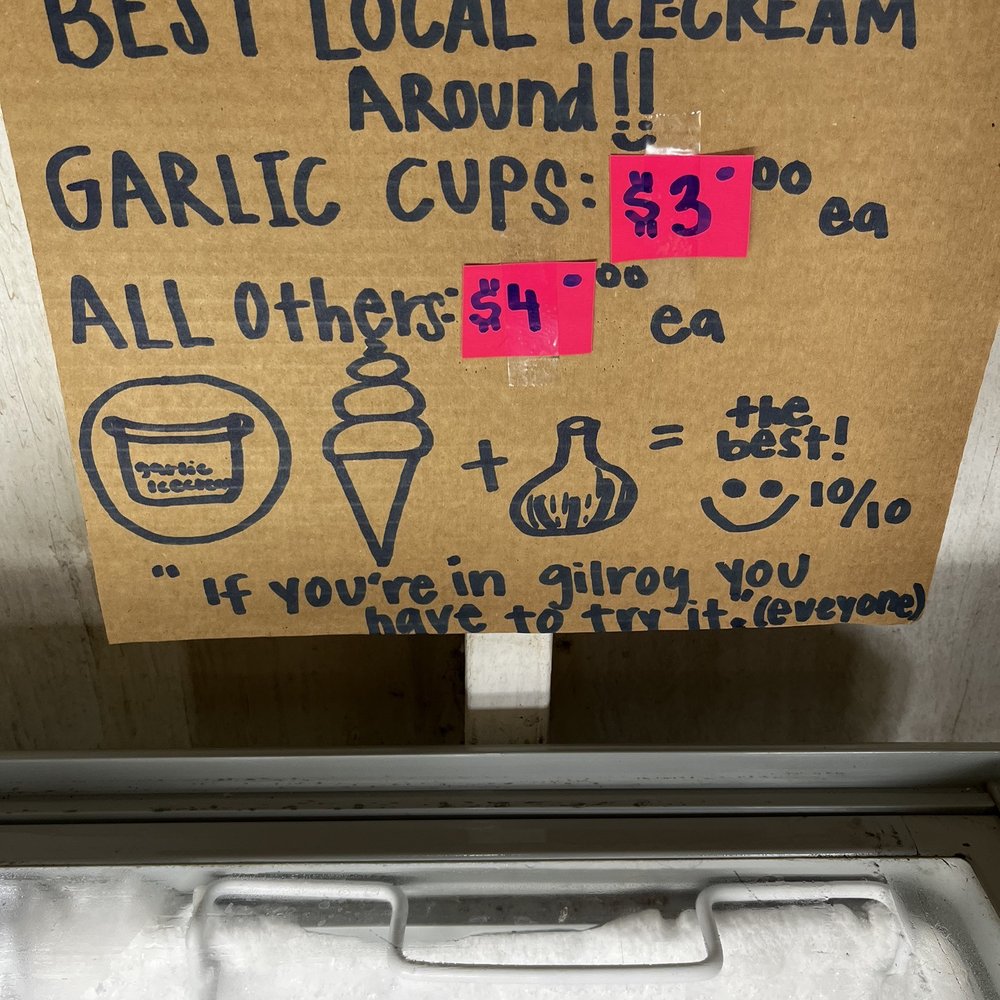 BEST LOCAL ICECREAM
ARound!!
GARLIC CUPS: $3.00 ea
ALL Others: $4.00 ea
garlic
icecream
+ = the
best!
10/10
" If you're in gilroy you
have to try it." (eveyone)